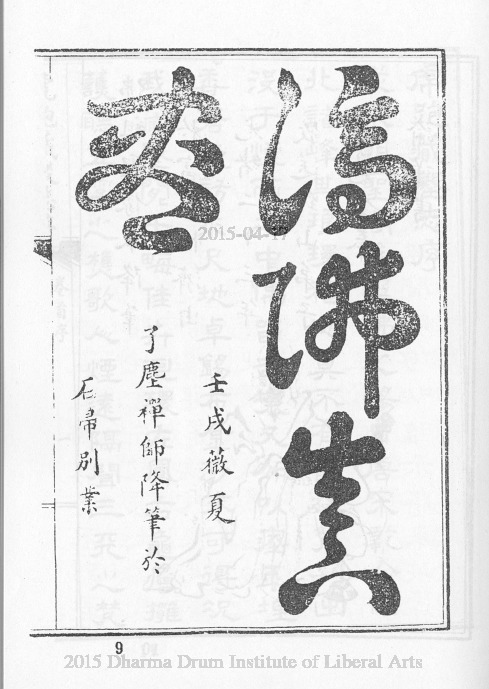 濟佛真
壬戌薇夏
了塵禪師降筆於
石帚別業
2015-04-17
9
2015 Dharma Drum Institute of Liberal Arts